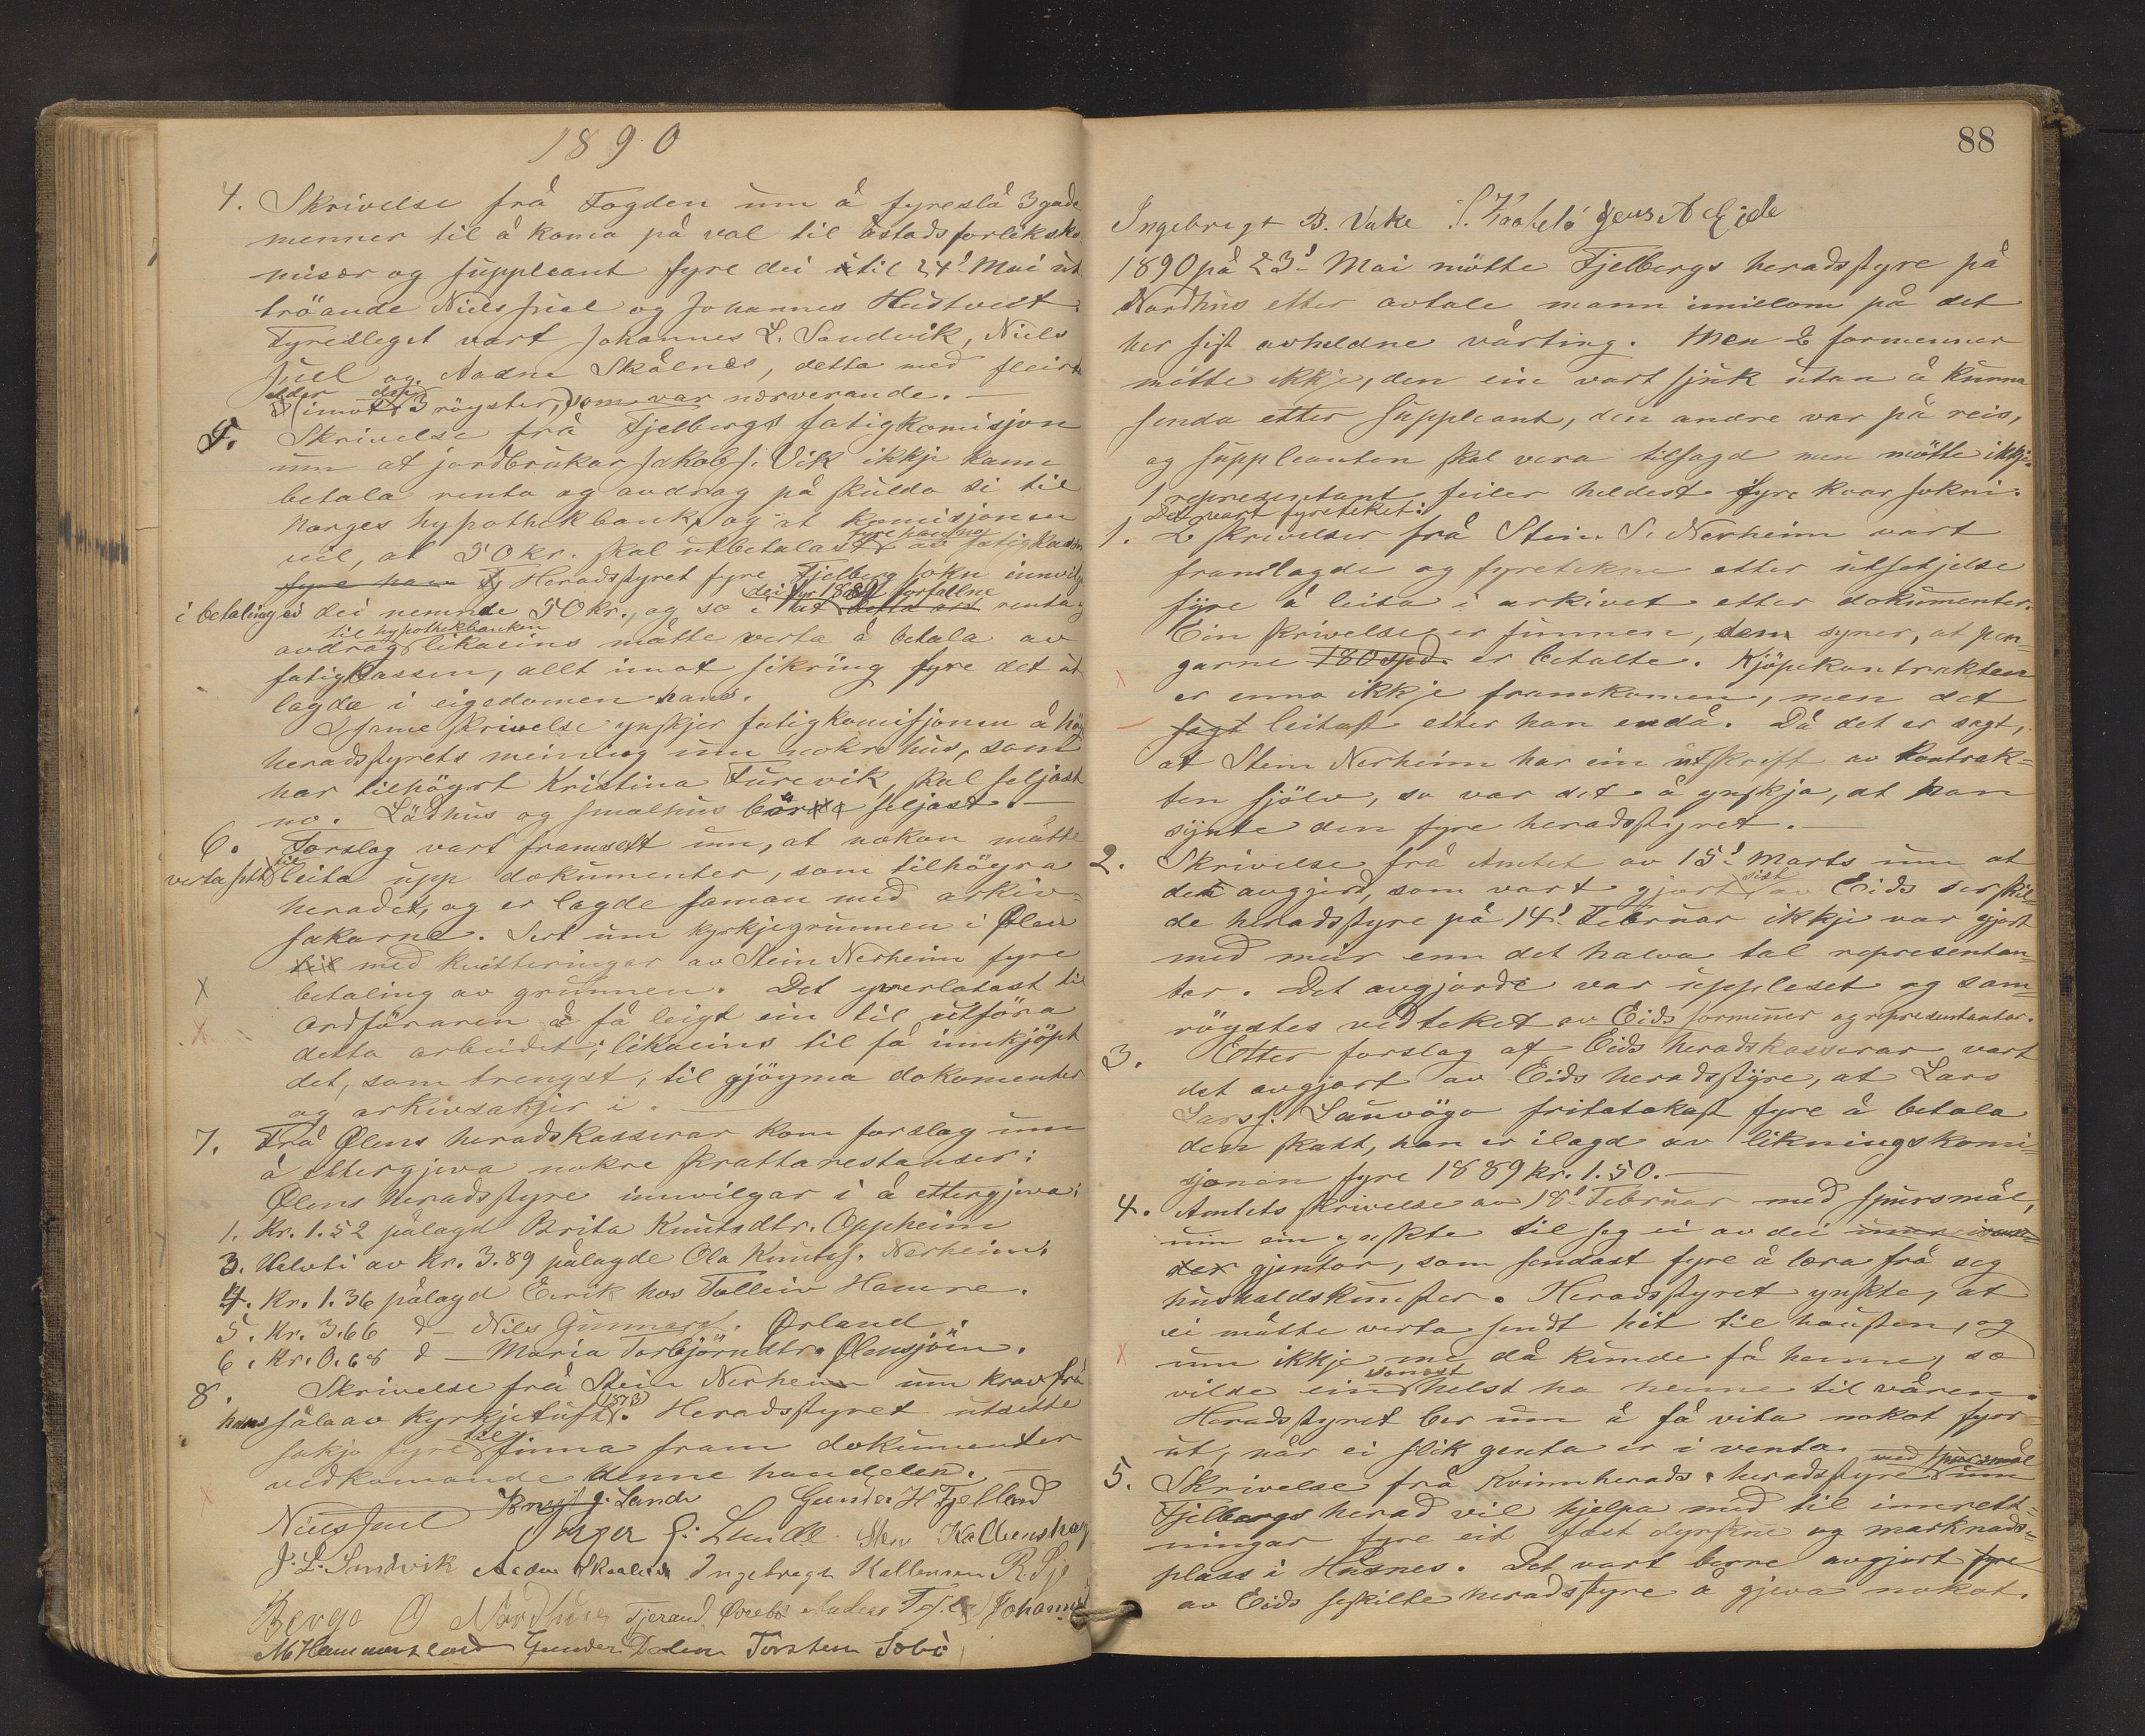 1890
4. Skrivelse frå Fogden um å fyreslå 3 gode
menner til å koma på val til åstadsforliksko-
misær og suppleant fyre dei til 24! Mai ut
tröande Niels Juel og Johannes Hustvedt.
Fyresleget vart Johannes L. Sandvik, Niels
Juel og Aadne Skålnes, detta med fleirta
elder imot 3 röyster, som var nærverande.
5. Skrivelse frå Fjelbergs fatigkomisjon
um at jordbrukar Jakob J. Vik ikkje kann
betala renta og avdrag på skulda si til
Norges hypothekbank, og at komisjonen
vil, at 50 kr. skal utbetalast fyre hans av fatigkassen
fyre han Heradsstyret fyre Fjelberg sokn innvilg
i betaling av dei nemnde 50 kr., og so i dei fyr 1889 forfallne renta og
avdrag til hypothekbanken likaeins måtte verta å betala av
fatigkassen, allt imot sikring fyre det ut
lagde i eigedomen hans.
I same skrivelse ynskjer fatigkomisjonen å höy
heradsstyrets meining um nokre hus, som
har tilhöyrt Kristina Furevik, skal seljast
no. Lådhus og smalhus bör seljast.
6. Forslag vart framsett um, at nokon måtte
verta sett til leita upp dokumenter, som tilhöyra
heradet, og er lagde saman med arkiv-
sakarne. Sert um kyrkjegrunnen i Ølen
med kvitteringar av Stein Nerheim fyre
betaling av grunnen. Det yverlatast til
Ordföraren å få leigt ein til utföra
detta arbeidet; likaeins til få innkjöpt
det, som trengst, til gjöyma dokumenter
og arkivsakjer i.
7. Frå Ølens heradskasserar kom forslag um
å ettergjeva nokre skattarestanser:
Ølens heradsstyre innvilgar i å ettergjeva:
1. Kr. 1.52 pålagd Brita Knutsdtr. Oppheim
3. Halvti av kr. 3.89 pålagde Ola Knutss. Nerheim.
4. Kr. 1.36 pålagd Eirik hos Tolleiv Hamre.
5. Kr. 3.66 d – Nils Gunnars. Ørland.
6. Kr. 0.68 d – Maria Torbjörndtr. Ølensjöen.
8. Skrivelse frå Stein Nerheim um krav frå
hans sala av kyrkjetuft (1873). Heradsstyret utsette
sakja fyre til finna fram dokumenter
vedkomande denne handelen.
Niels Juel J. Lande Gunder H Fjelland
J. Lunde Kallevåg
J. L. Sandvik Aadne Skaalnes Ingebregt Kallevaag
Berge O Nordhus Tjerand Øvrebö Johannes
M Hammersland Gunder Dalen Torsten Söbö
88
Ingebregt B. Vake Jens A Eide
1890 på 23! Mai mötte Fjelbergs heradsstyre på
Nordhus etter avtale mann imillom på det
her sist avheldne vårting. Men 2 formenner
mötte ikkje, den ein vart sjuk utan å kunna
senda etter suppleant, den andre var på reis,
og suppleanten skal vera tilsagd men mötte ikkje.
1 representant feiler heldest fyre kvar sokn.
Det vart fyreteket:
1. 2 skrivelser frå Stein S. Nerheim vart
framlagde og fyretekne etter utsetjelse
fyre å leita i arkivet etter dokumenter.
Ein skrivelse er funnen, som syner, at pen-
garne 180 spd. er betalte. Kjöpekontrakten
er enno ikkje framkomen, men det
sagt leitast etter han endå. Då det er sagt,
at Stein Nerheim har ein utskrift av kontrak-
ten sjölv, so var det å ynskja, at han
synte den fyre heradsstyret.
2. Skrivelse frå Amtet av 15! Marts um at
den avgjerd, som vart gjort sist av Eids serskil-
de heradsstyre på 14! Februar ikkje var gjort
med meir enn det halva tal representan-
tar. Det avgjorde var uppleset og sam-
röystes vedteket av Eids formenner og representantar.
3. Etter forslag af Eids heradskasserar vart
det avgjort av Eids heradsstyre, at Lars
Larss. Sauvöga fritatakast fyre å betala
den skatt, han er ilagd av likningskomi-
sjonen fyre 1889 kr. 1.50.
4. Amtets skrivelse av 18! Februar med spursmål,
um ein ynskte til seg ei av dei
gjentor, som sendast fyre å læra frå seg
hushaldskunster. Heradsstyret ynskte, at
ei måtte verta sendt hit til hausten, og
um ikkje me då kunde få henne, so
vilde ein somest helst ha henne til våren.
Heradsstyret ber um å få vita nokot fyre-
ut, når ei slik genta er i venta.
5. Skrivelse frå Kvinnherads heradsstyre med spursmål um
Fjelbergs herad vil hjelpa med til innrett-
ningar fyre eit fast dyrskue og marknads-
plass i Husnes. Det vart berre avgjort fyre
av Eids seskilte heradsstyre å gjeva nokot.